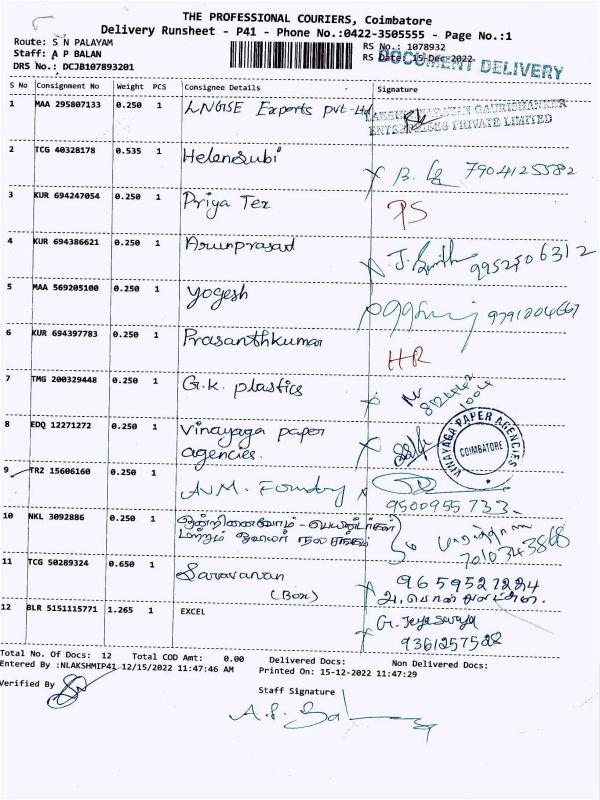 THE PROFESSIONAL COURIERS, Coimbatore
Delivery Runsheet - P41 - Phone No.:0422-3505555 - Page No.:1
Route: S N PALAYAM
Staff: A P BALAN
DRS No.: DCJB107893201
RS No.: 1078932
RS Date: 15-Dec-2022
DOCUMENT DELIVERY
S No Consignment No Weight PCS Consignee Details Signature
1 MAA 295807133 0.250 1 LNGISE Exports pvt-Ltd
ENTERPRISES PRIVATE LIMITED
2 TCG 40328178 0.535 1 Helensubi 7904125582
3 KUR 694247054 0.250 1 Priya Tex PS
4 KUR 694386621 0.250 1 Arunprasad 9952506312
5 MAA 569205100 0.250 1 yogesh 9791004667
6 KUR 694397783 0.250 1 Prasanthkumar HR
7 TMG 200329448 0.250 1 G.K. plastics
8 EDQ 12271272 0.250 1 Vinayaga paper
agencies.
VINAYAGA PAPER AGENCIES
COIMBATORE
9 TRZ 15606160 0.250 1 A.V.M. Foundry
9500955733
10 NKL 3092886 0.250 1
மற்றும்
7010343868
11 TCG 50289324 0.650 1 Saravanan 9659527224
(Box)
12 BLR 5151115771 1.265 1 EXCEL G. Jeya
9361257528
Total No. Of Docs: 12 Total COD Amt: 0.00 Delivered Docs: Non Delivered Docs:
Entered By :NLAKSHMIP41 12/15/2022 11:47:46 AM Printed On: 15-12-2022 11:47:29
Verified By
Staff Signature
A.P. Bal